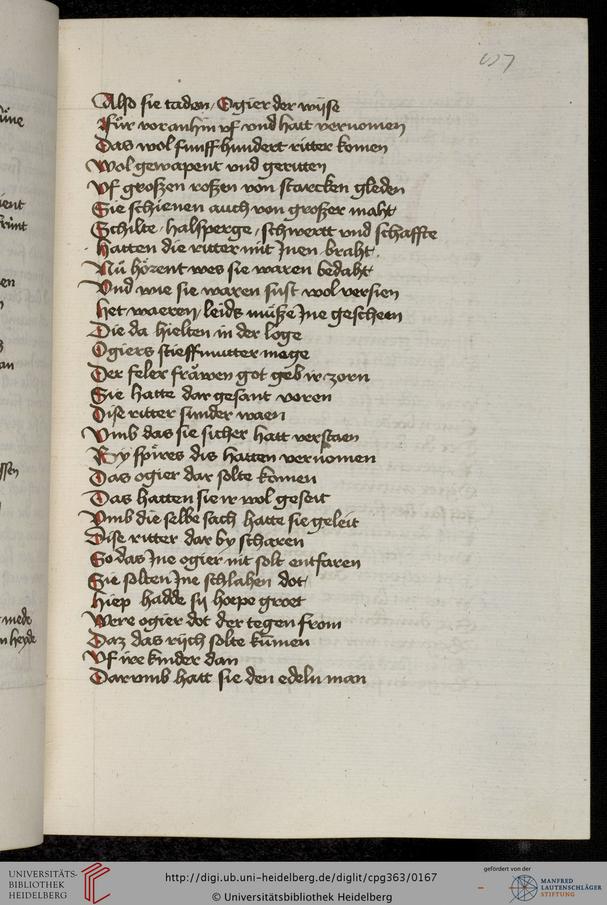 Also sie taden / Ogier der wijse
Für vor anhin vf vnd hatt vernomen
Das wol funff hundert ritter komen
Wol gewapent vnd geritten
Vf großen roßen von starcken gleden
Sie schienen auch von großer maht
Schilte / halsperge / schwertt vnd schaffte
Hatten die ritter mit Jnen braht
Nü hörent wes sie waren bedaht
Vnd wie sie waren sust wol versien
Het waeren / leids müße Jne gescheen
Die da hielten in der loge
Ogiers stieffmutter moge
Der feler fräwen got geb ir zorn
Sie hatte dar gesant voren
Dise ritter sunder waen
Vmb das sie sicher hatt verstaen
By spires dis hatten vernomen
Das ogier dar solte komen
Das hatten sie ir wol geseit
Vmb die selbe sach hatte sie geleit
Dise ritter dar by scharen
So das Jne ogier nit solt entfaren
Sie solten Jne schlahen dot /
Hiep hadde sij hoepe groet
Were ogier dot der tegen from
Daz das rijch solte kümen
Vf ire kinder dan
Darvmb hatt sie den edeln man
UNIVERSITÄTS-
BIBLIOTHEK
HEIDELBERG
http://digi.ub.uni-heidelberg.de/diglit/cpg363/0167
© Universitätsbibliothek Heidelberg
gefördert von der
MANFRED
LAUTENSCHLÄGER
STIFTUNG